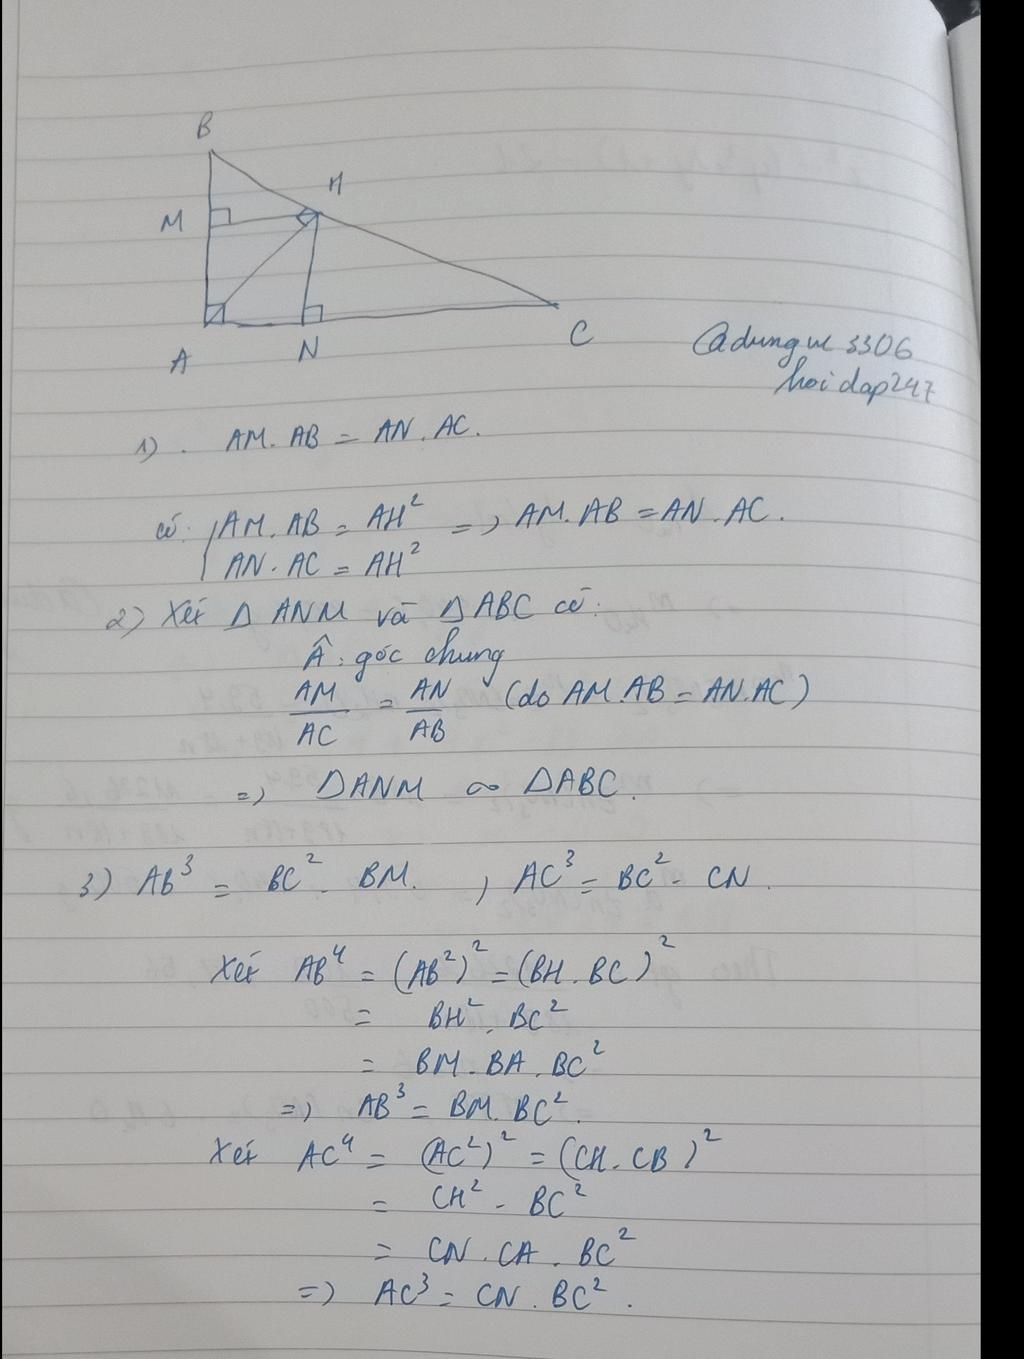 B
H
M
A
N
C
@dungvc3306
hoidap247
1) . AM. AB = AN. AC.
có: { AM. AB = AH² => AM. AB = AN. AC.
AN. AC = AH²
2) Xét Δ ANM và Δ ABC có:
Â: góc chung
AM/AC = AN/AB (do AM. AB = AN. AC)
=> ΔANM ∽ ΔABC.
3) AB³ = BC² . BM. , AC³ = BC² . CN.
Xét AB⁴ = (AB²)² = (BH. BC)²
= BH². BC²
= BM. BA. BC²
=> AB³ = BM. BC².
Xét AC⁴ = (AC²)² = (CH. CB)²
= CH² . BC²
= CN. CA. BC²
=> AC³ = CN. BC².